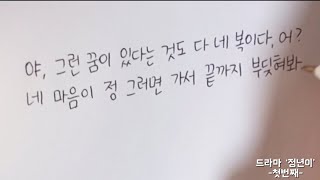 야, 그런 꿈이 있다는 것도 다 네 복이다, 어?
네 마음이 정 그러면 가서 끝까지 부딪혀봐
드라마 '정년이'
-첫번째-